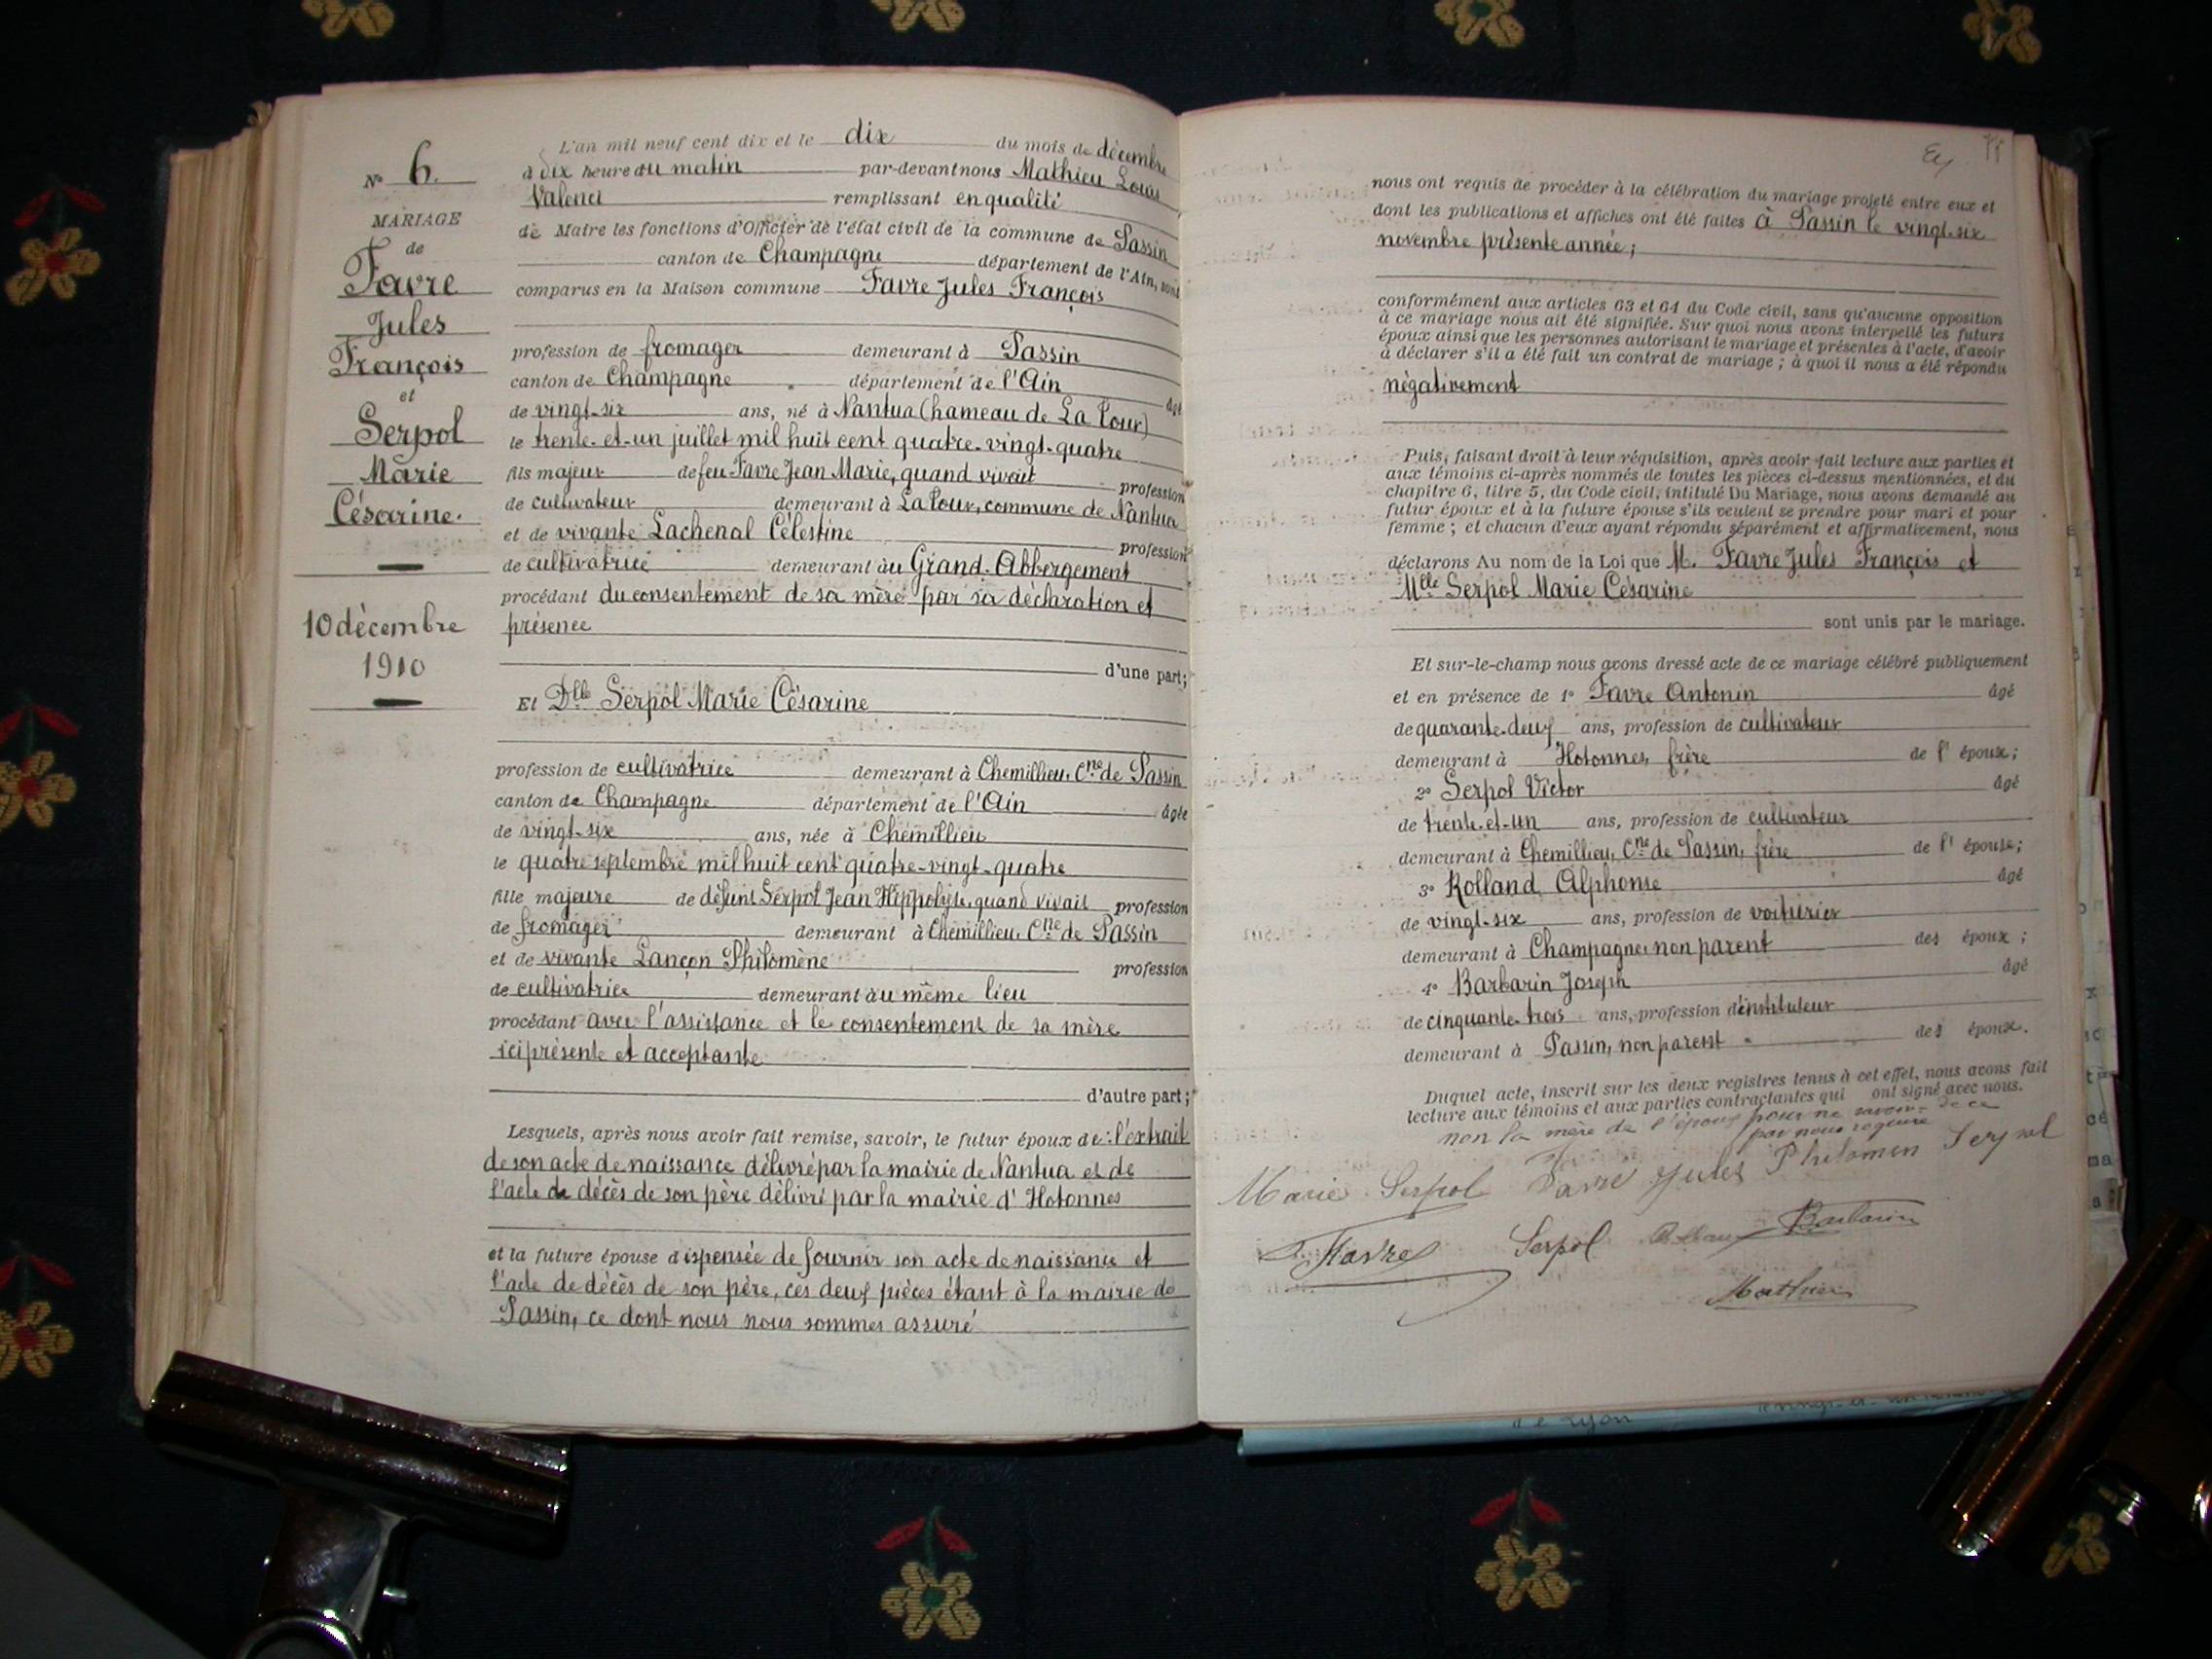 N° 6.
MARIAGE
de
Favre
Jules
François
et
Serpol
Marie
Césarine.
10 décembre
1910
L'an mil neuf cent dix et le dix du mois de décembre
à dix heure du matin par-devant nous Mathieu Louis
remplissant en qualité
de Maire les fonctions d'Officier de l'état civil de la commune de Passin
canton de Champagne département de l'Ain, sont
comparus en la Maison commune Favre Jules François
profession de fromager demeurant à Passin
canton de Champagne département de l'Ain âgé
de vingt-six ans, né à Nantua (hameau de La Cour)
le trente-et-un juillet mil huit cent quatre-vingt-quatre
fils majeur de feu Favre Jean Marie, quand vivait profession
de cultivateur demeurant à La Cour, commune de Nantua
et de vivante Lachenal Célestine profession
de cultivatrice demeurant au Grand-Abbergement
procédant du consentement de sa mère par sa déclaration et
présence
d'une part;
Et Dlle Serpol Marie Césarine
profession de cultivatrice demeurant à Chemillieu, Cne de Passin
canton de Champagne département de l'Ain âgée
de vingt-six ans, née à Chemillieu
le quatre septembre mil huit cent quatre-vingt-quatre
fille majeure de défunt Serpol Jean Hippolyte, quand vivait profession
de fromager demeurant à Chemillieu, Cne de Passin
et de vivante Lançon Philomène profession
de cultivatrice demeurant au même lieu
procédant avec l'assistance et le consentement de sa mère
ici présente et acceptante
d'autre part;
Lesquels, après nous avoir fait remise, savoir, le futur époux de : l'extrait
de son acte de naissance délivré par la mairie de Nantua et de
l'acte de décès de son père délivré par la mairie d'Hotonnes
et la future épouse dispensée de fournir son acte de naissance et
l'acte de décès de son père, ces deux pièces étant à la mairie de
Passin, ce dont nous nous sommes assuré
nous ont requis de procéder à la célébration du mariage projeté entre eux et
dont les publications et affiches ont été faites à Passin le vingt-six
novembre présente année;
conformément aux articles 63 et 64 du Code civil, sans qu'aucune opposition
à ce mariage nous ait été signifiée. Sur quoi nous avons interpellé les futurs
époux ainsi que les personnes autorisant le mariage et présentes à l'acte, d'avoir
à déclarer s'il a été fait un contrat de mariage ; à quoi il nous a été répondu
négativement
Puis, faisant droit à leur réquisition, après avoir fait lecture aux parties et
aux témoins ci-après nommés de toutes les pièces ci-dessus mentionnées, et du
chapitre 6, titre 5, du Code civil, intitulé Du Mariage, nous avons demandé au
futur époux et à la future épouse s'ils veulent se prendre pour mari et pour
femme ; et chacun d'eux ayant répondu séparément et affirmativement, nous
déclarons Au nom de la Loi que M. Favre Jules François et
Mlle Serpol Marie Césarine
sont unis par le mariage.
Et sur-le-champ nous avons dressé acte de ce mariage célébré publiquement
et en présence de 1° Favre Antonin âgé
de quarante-deux ans, profession de cultivateur
demeurant à Hotonnes, frère de l'époux;
2° Serpol Victor âgé
de trente-et-un ans, profession de cultivateur
demeurant à Chemillieu, Cne de Passin, frère de l'épouse;
3° Rolland Alphonse âgé
de vingt-six ans, profession de voiturier
demeurant à Champagne, non parent des époux ;
4° Barbarin Joseph âgé
de cinquante-trois ans, profession d'instituteur
demeurant à Passin, non parent des époux.
Duquel acte, inscrit sur les deux registres tenus à cet effet, nous avons fait
lecture aux témoins et aux parties contractantes qui ont signé avec nous.
non la mère de l'époux pour ne savoir de ce
par nous requise
Marie Serpol Favre Jules Philomen Serpol
Favre Serpol Barbarin
Mathieu
de Lyon